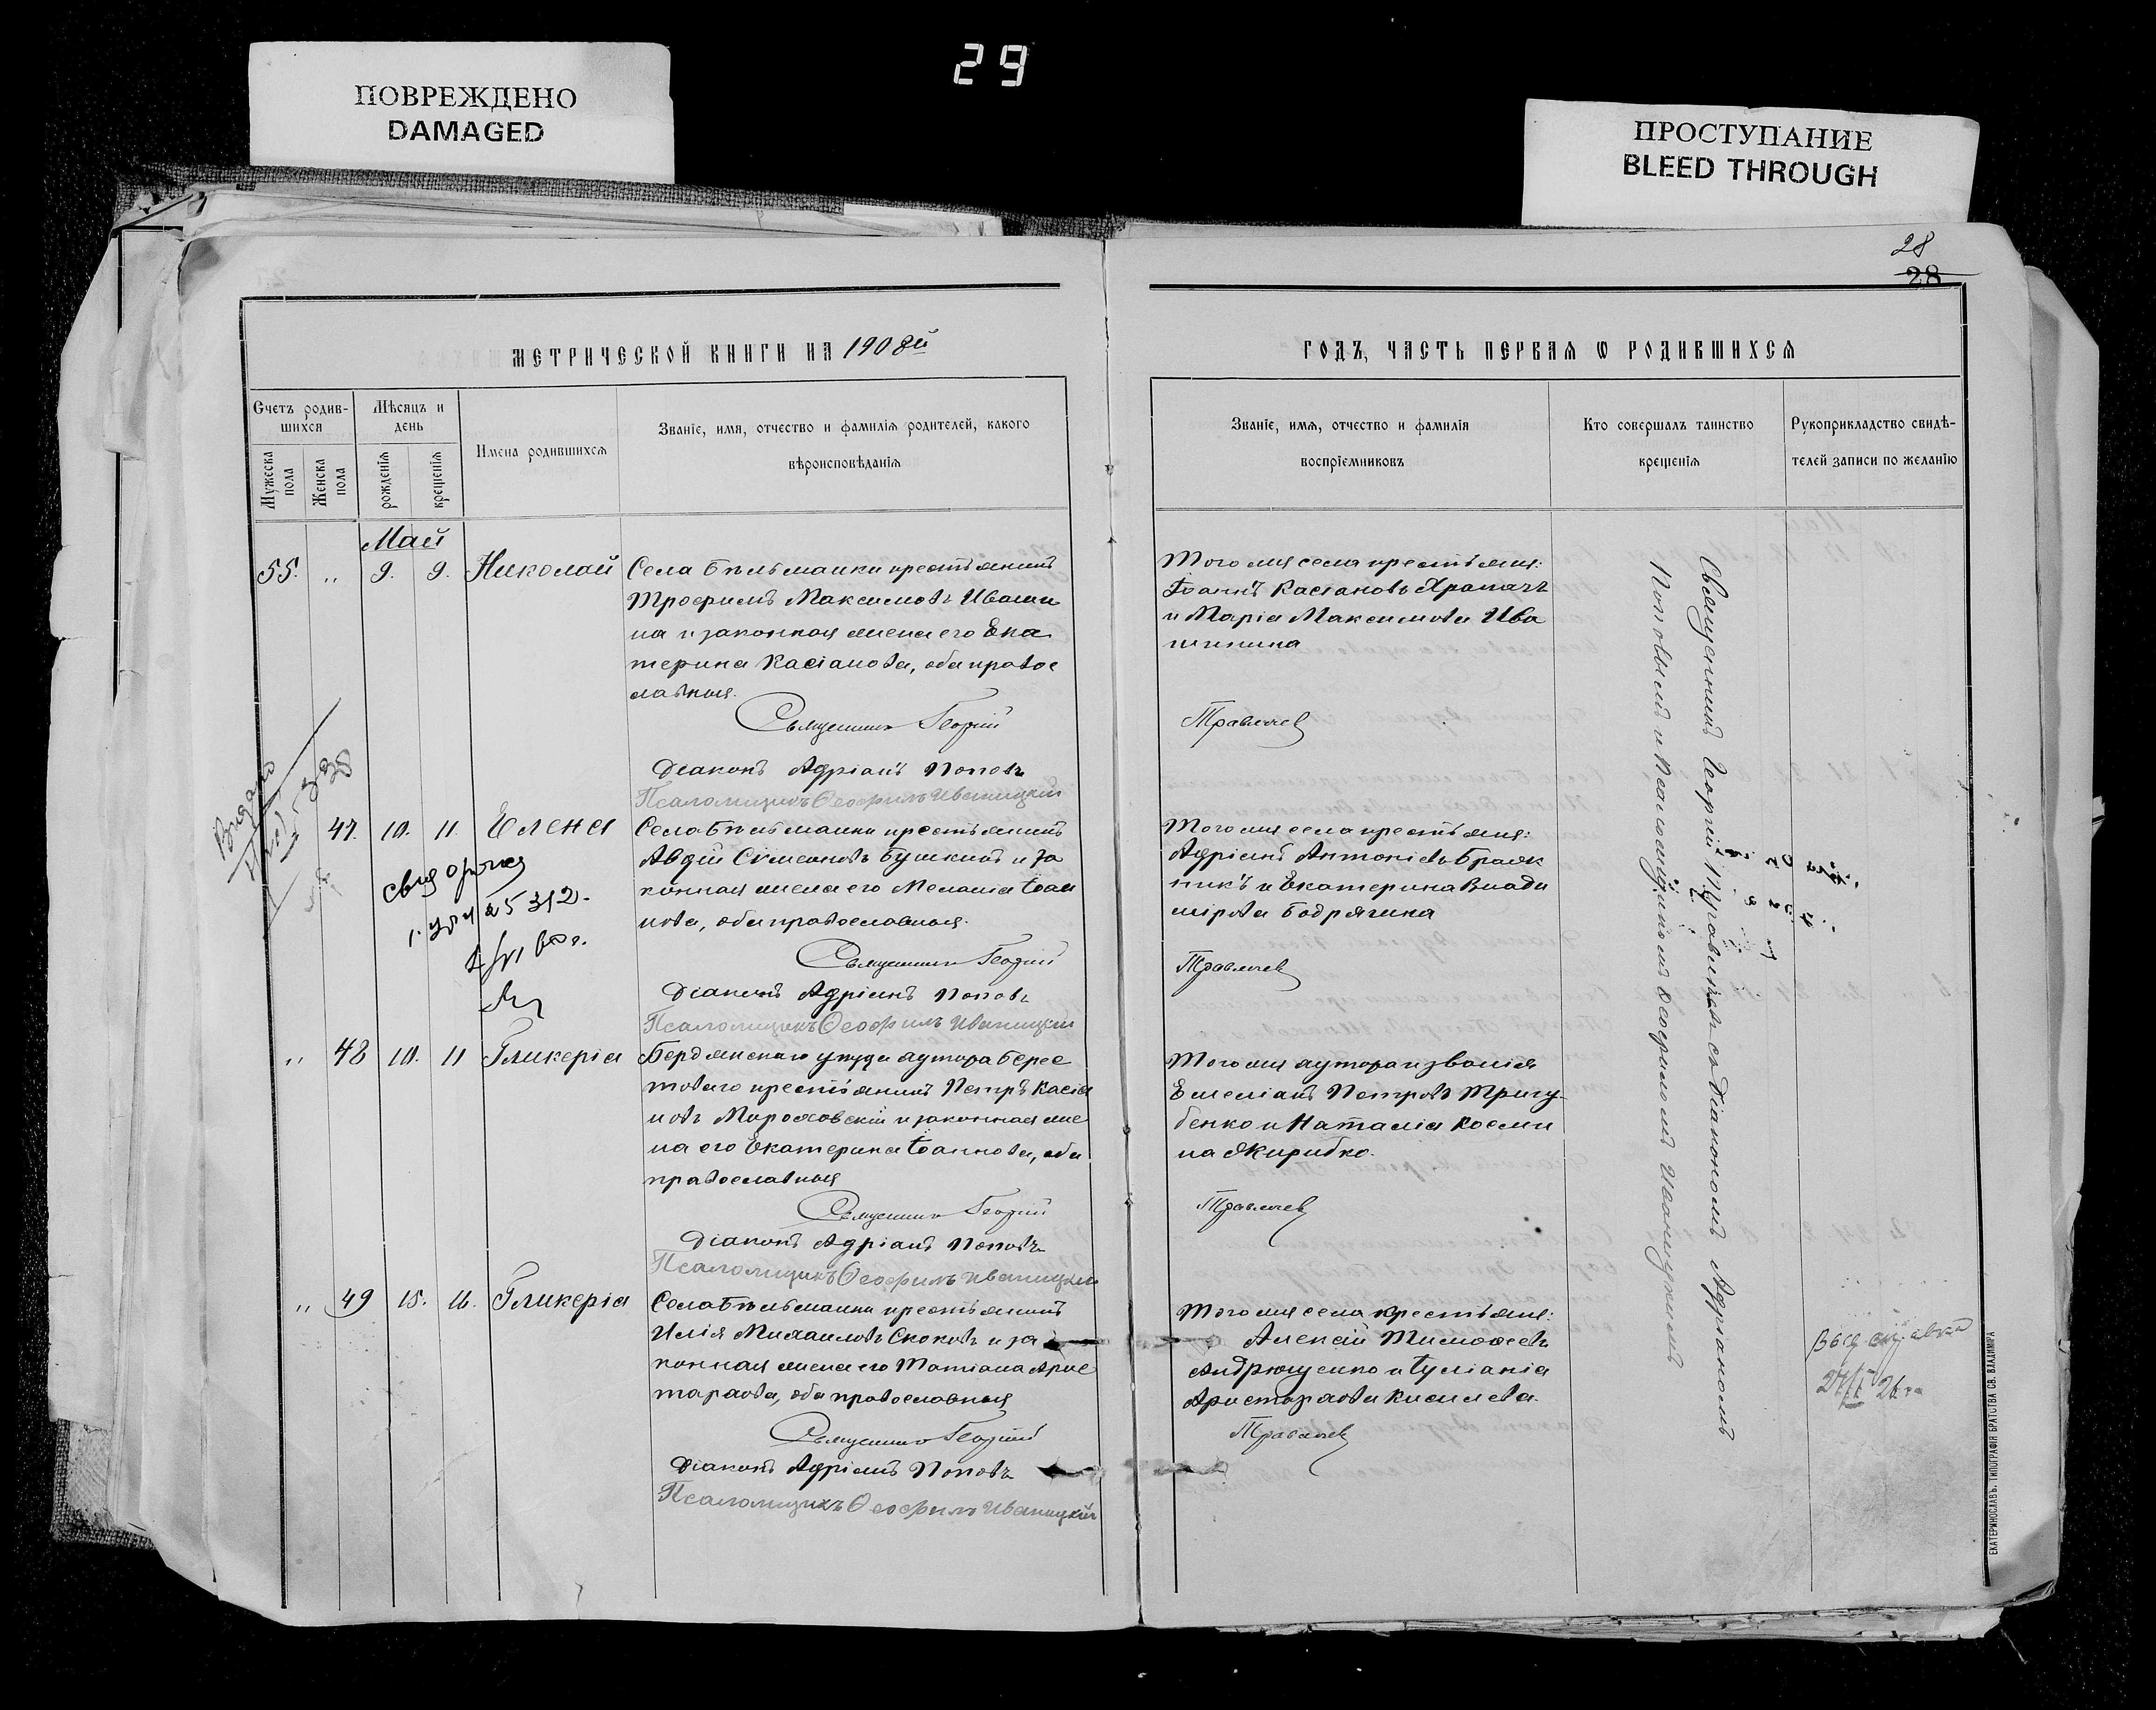 29
ПОВРЕЖДЕНО
DAMAGED
ПРОСТУПАНИЕ
BLEED THROUGH
28
28
МЕТРИЧЕСКОЙ КНИГИ НА 1908й
ГОДЪ, ЧАСТЬ ПЕРВАЯ Ѡ РОДИВШИХСЯ
Счетъ родив-
шихся
Мужеска
пола
Женска
пола
Мѣсяцъ и
день
рожденія
крещенія
Имена родившихся
Званіе, имя, отчество и фамилія родителей, какого
вѣроисповѣданія
Званіе, имя, отчество и фамилія
воспріемниковъ
Кто совершалъ таинство
крещенія
Рукоприкладство свидѣ-
телей записи по желанію
Май
55. " 9. 9. Николай Села Бѣльманки крестьянинъ
Трофимъ Максимовъ Иваши
на и законная жена его Ека
терина Касіанова, оба правос
лавныя.
Священникъ Георгій
Діаконъ Адріанъ Поповъ
Псаломщикъ Ѳеофилъ Иваницкій
Того же села крестьяне:
Іоаннъ Касіановъ Храпачъ
и Марія Максимова Ива
шинина
Травлеев
47. 10. 11. Елена Села Бѣльманки крестьянинъ
Авдій Симеоновъ Бушкинъ и за
конная жена его Меланія Іоан
нова, оба православныя.
Священникъ Георгій
Діаконъ Адріанъ Поповъ
Псаломщикъ Ѳеофилъ Иваницкій
Того же села крестьяне:
Адріанъ Антоніевъ Бражк
никъ и Екатерина Влади
мірова Бодрягина
Травлеев
Видано
" 48 10. 11 Гликерія Бердянскаго уѣзда хутора Берес
товаго крестьянинъ Петръ Касіа
новъ Мороховскій и законная же
на его Екатерина Іоаннова, оба
православныя
Священникъ Георгій
Діаконъ Адріанъ Поповъ
Псаломщикъ Ѳеофилъ Иваницкій
Того же хутора и званія
Емеліанъ Петровъ Тригу-
бенко и Наталія Косми
на
Травлеев
" 49 15. 16. Гликерія Села Бѣльманки крестьянинъ
Илія Михаиловъ Скоковъ и за
конная жена его Татіана Арис
тархова, оба православныя
Священникъ Георгій
Діаконъ Адріанъ Поповъ
Псаломщикъ Ѳеофилъ Иваницкій
Того же села крестьяне:
Алексій Тимоѳеевъ
Андрющенко и Іуліанія
Аристархова Киселева.
Травлеев
Священникъ Георгій съ Діакономъ Адріаномъ
Поповымъ и Псаломщикомъ Ѳеофиломъ Иваницкимъ
ЕКАТЕРИНОСЛАВЪ. ТИПОГРАФІЯ БРАТСТВА СВ. ВЛАДИМІРА